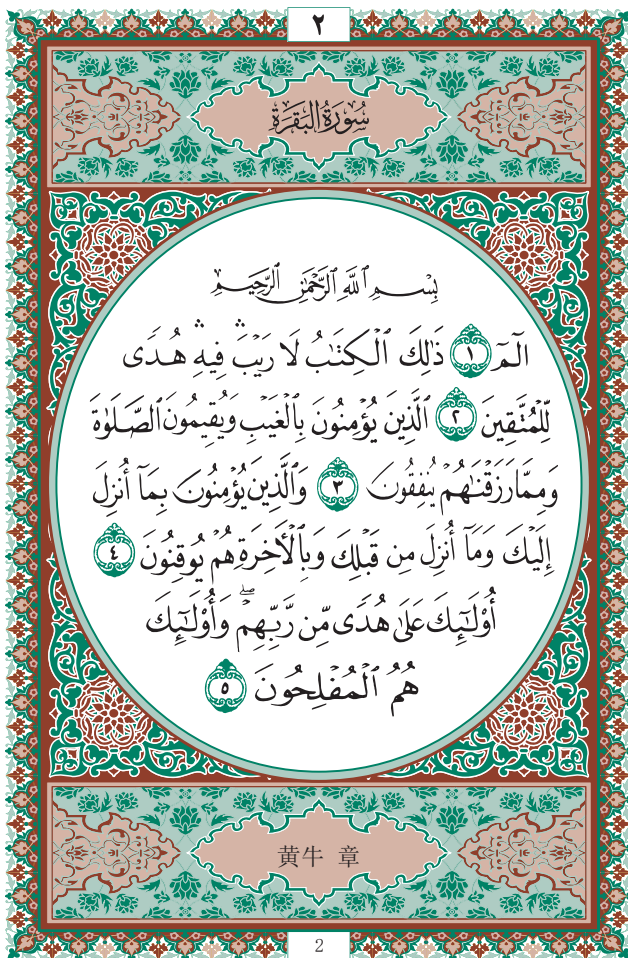 ٢
سُورَةُ البَقَرَةِ
بِسْمِ ٱللَّهِ ٱلرَّحْمَٰنِ ٱلرَّحِيمِ
الٓمٓ ١ ذَٰلِكَ ٱلْكِتَٰبُ لَا رَيْبَ ۛ فِيهِ ۛ هُدًى
لِّلْمُتَّقِينَ ٢ ٱلَّذِينَ يُؤْمِنُونَ بِٱلْغَيْبِ وَيُقِيمُونَ ٱلصَّلَوٰةَ
وَمِمَّا رَزَقْنَٰهُمْ يُنفِقُونَ ٣ وَٱلَّذِينَ يُؤْمِنُونَ بِمَآ أُنزِلَ
إِلَيْكَ وَمَآ أُنزِلَ مِن قَبْلِكَ وَبِٱلْأَخِرَةِ هُمْ يُوقِنُونَ ٤
أُو۟لَٰٓئِكَ عَلَىٰ هُدًى مِّن رَّبِّهِمْ ۖ وَأُو۟لَٰٓئِكَ
هُمُ ٱلْمُفْلِحُونَ ٥
黄牛 章
2